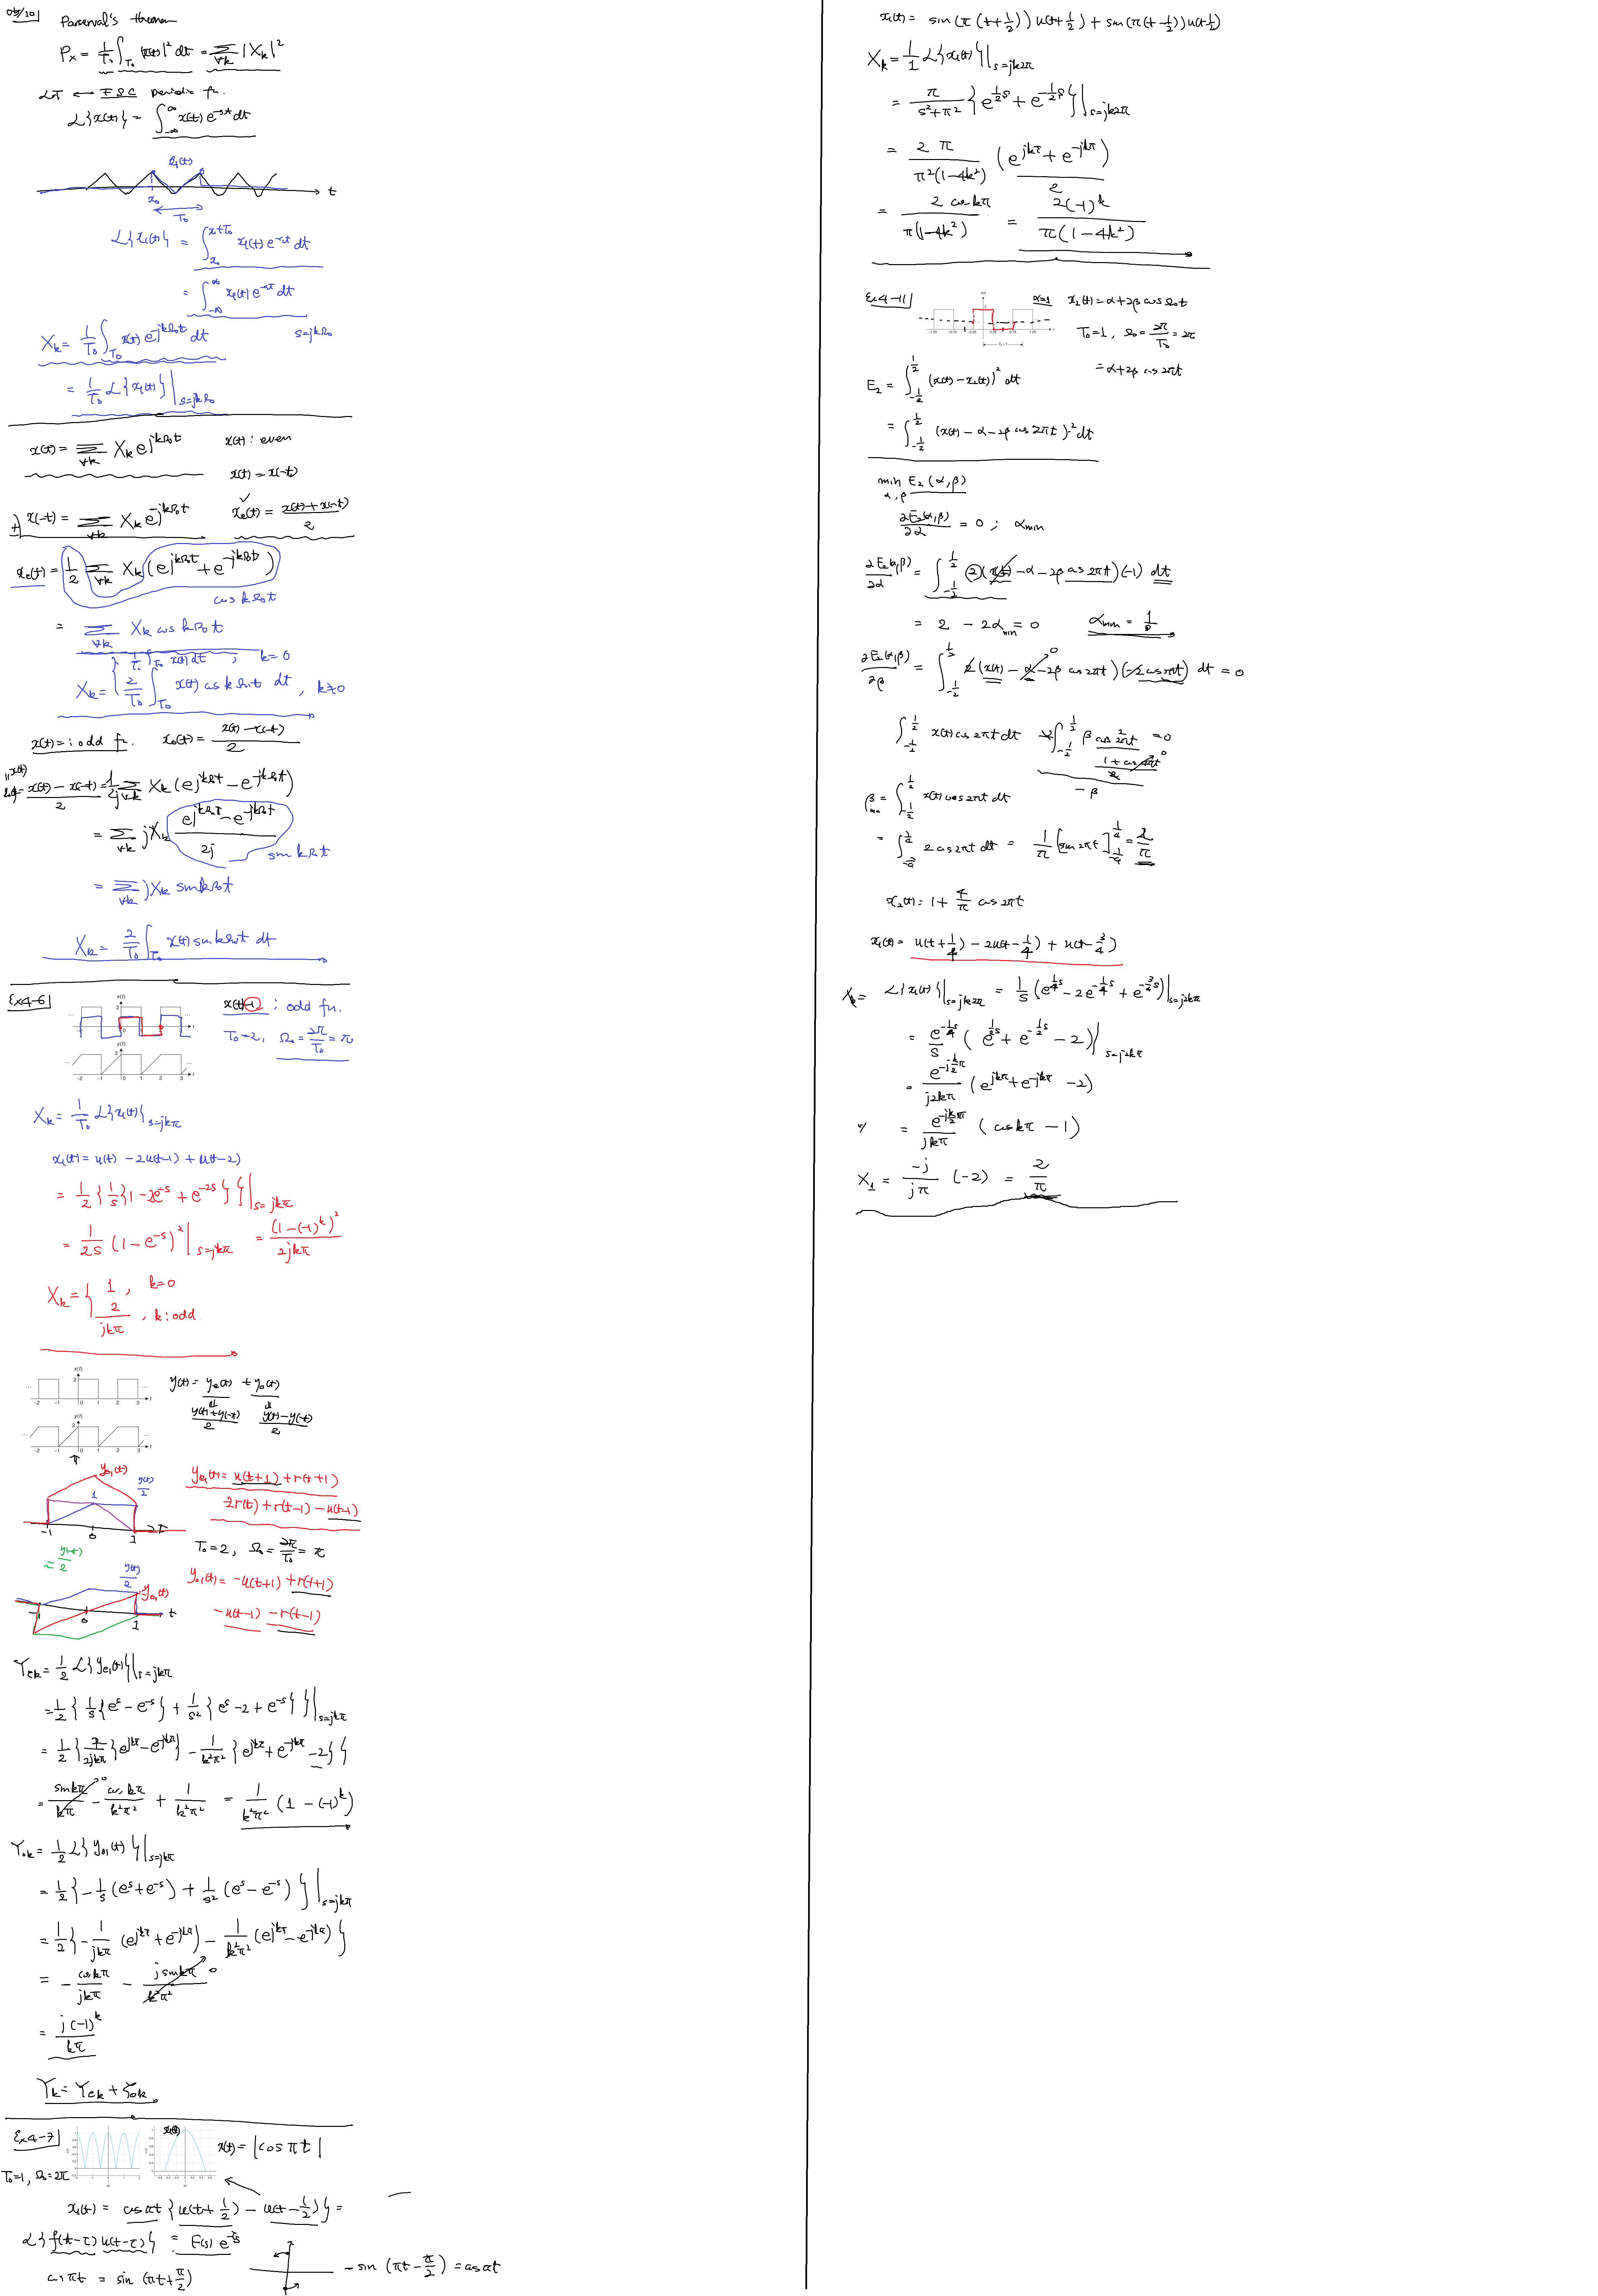 05/10 Parserval's theorem
Px = 1/T₀ ∫_T₀ |x(t)|² dt = Σ_∀k |X_k|²
LT ← FSC periodic fn.
L{x(t)} = ∫_-∞^∞ x(t) e^-st dt
x₁(t)
t
x₀
T₀
L{x₁(t)} = ∫_x₀^x₀+T₀ x₁(t) e^-st dt
= ∫_-∞^∞ x₁(t) e^-st dt
X_k = 1/T₀ ∫_T₀ x(t) e^-jkΩ₀t dt s=jkΩ₀
= 1/T₀ L{x₁(t)}|s=jkΩ₀
x(t) = Σ_∀k X_k e^jkΩ₀t x(t) : even
x(t) = x(-t)
+) x(-t) = Σ_∀k X_k e^-jkΩ₀t x_e(t) = (x(t)+x(-t))/2
x_e(t) = 1/2 Σ_∀k X_k (e^jkΩ₀t + e^-jkΩ₀t)
cos kΩ₀t
= Σ_∀k X_k cos kΩ₀t
X_k = { 1/T₀ ∫_T₀ x(t) dt , k=0
2/T₀ ∫_T₀ x(t) cos kΩ₀t dt , k≠0
x(t) = : odd fn. x₀(t) = (x(t) - x(-t))/2
x(t)
(x(t) - x(-t))/2 = 1/2j Σ_∀k X_k (e^jkΩ₀t - e^-jkΩ₀t)
= Σ_∀k jX_k (e^jkΩ₀t - e^-jkΩ₀t)/2j
sin kΩ₀t
= Σ_∀k jX_k sin kΩ₀t
X_k = 2/T₀ ∫_T₀ x(t) sin kΩ₀t dt
Ex4-6 x(t)-1 : odd fn.
T₀=2, Ω₀ = 2π/T₀ = π
X_k = 1/T₀ L{x₁(t)}|s=jkπ
x₁(t) = u(t) - 2u(t-1) + u(t-2)
= 1/2 {1/s {1 - 2e^-s + e^-2s}}|s=jkπ
= 1/2s (1 - e^-s)²|s=jkπ = (1-(-1)^k)²/2jkπ
X_k = { 1 , k=0
2/jkπ , k: odd
x(t)
2
-2 -1 0 1 2 3 t
y(t)
2
-2 -1 0 1 2 3 t
y(t) = y_e(t) + y₀(t)
(y(t)+y(-t))/2 (y(t)-y(-t))/2
y_e1(t)
y(t)/2
1
-1 0 1
y_e1(t) = u(t+1) + r(t+1)
2r(t) + r(t-1) - u(t-1)
T₀=2, Ω₀ = 2π/T₀ = π
-y(-t)/2
y(t)/2
y₀₁(t)
-1 0 1 t
y₀₁(t) = -u(t+1) + r(t+1)
-u(t-1) - r(t-1)
Y_ek = 1/2 L{y_e1(t)}|s=jkπ
= 1/2 {1/s {e^s - e^-s} + 1/s² {e^s - 2 + e^-s}}|s=jkπ
= 1/2 {2/2jkπ {e^jkπ - e^-jkπ} - 1/k²π² {e^jkπ + e^-jkπ - 2}}
= sin kπ/kπ - cos kπ/k²π² + 1/k²π² = 1/k²π² (1 - (-1)^k)
Y_ok = 1/2 L{y₀₁(t)}|s=jkπ
= 1/2 {-1/s (e^s + e^-s) + 1/s² (e^s - e^-s)}|s=jkπ
= 1/2 {-1/jkπ (e^jkπ + e^-jkπ) - 1/k²π² (e^jkπ - e^-jkπ)}
= - cos kπ/jkπ - j sin kπ/k²π² 0
= j(-1)^k/kπ
Y_k = Y_ek + Y_ok
Ex4-7 x(t) = |cos πt|
T₀=1, Ω₀=2π
x₁(t) = cos πt {u(t+1/2) - u(t-1/2)} =
L{f(t-τ)u(t-τ)} = F(s) e^-τs
cos πt = sin (πt + π/2)
- sin (πt - π/2) = cos πt
x₁(t) = sin(π(t+1/2))u(t+1/2) + sin(π(t-1/2))u(t-1/2)
X_k = 1/1 L{x₁(t)}|s=jk2π
= π/(s²+π²) {e^½s + e^-½s}|s=jk2π
= 2π/(π²(1-4k²)) (e^jkπ + e^-jkπ)/2
= 2 cos kπ/(π(1-4k²)) = 2(-1)^k/(π(1-4k²))
Ex4-11 α=1 x₂(t) = α+2β cos Ω₀t
T₀=1, Ω₀ = 2π/T₀ = 2π
= α+2β cos 2πt
E₂ = ∫_-½^½ (x(t) - x₂(t))² dt
= ∫_-½^½ (x(t) - α - 2β cos 2πt)² dt
min_α,β E₂(α,β)
∂E₂(α,β)/∂α = 0 ; αmin
∂E₂(α,β)/∂α = ∫_-½^½ 2(x(t) - α - 2β cos 2πt)(-1) dt
= 2 - 2αmin = 0
∂E₂(α,β)/∂β = ∫_-½^½ 2(x(t) - α - 2β cos 2πt)(-2cos 2πt) dt = 0
∫_-½^½ x(t) cos 2πt dt - 2∫_-½^½ β cos² 2πt = 0
- β
βmin = ∫_-½^½ x(t) cos 2πt dt
= ∫_-¼^¼ 2 cos 2πt dt = 1/π [sin 2πt]_-¼^¼ = 2/π
x₂(t) = 1 + 4/π cos 2πt
x₁(t) = u(t+1/4) - 2u(t-1/4) + u(t-3/4)
X_k = L{x₁(t)}|s=jk2π = 1/s (e^¼s - 2e^-¼s + e^-¾s)|s=j2kπ
= e^-¼s/s (e^½s + e^-½s - 2)|s=j2kπ
= e^-jkπ/2/j2kπ (e^jkπ + e^-jkπ - 2)
= e^-jkπ/2/jkπ (cos kπ - 1)
X₁ = -j/jπ (-2) = 2/π